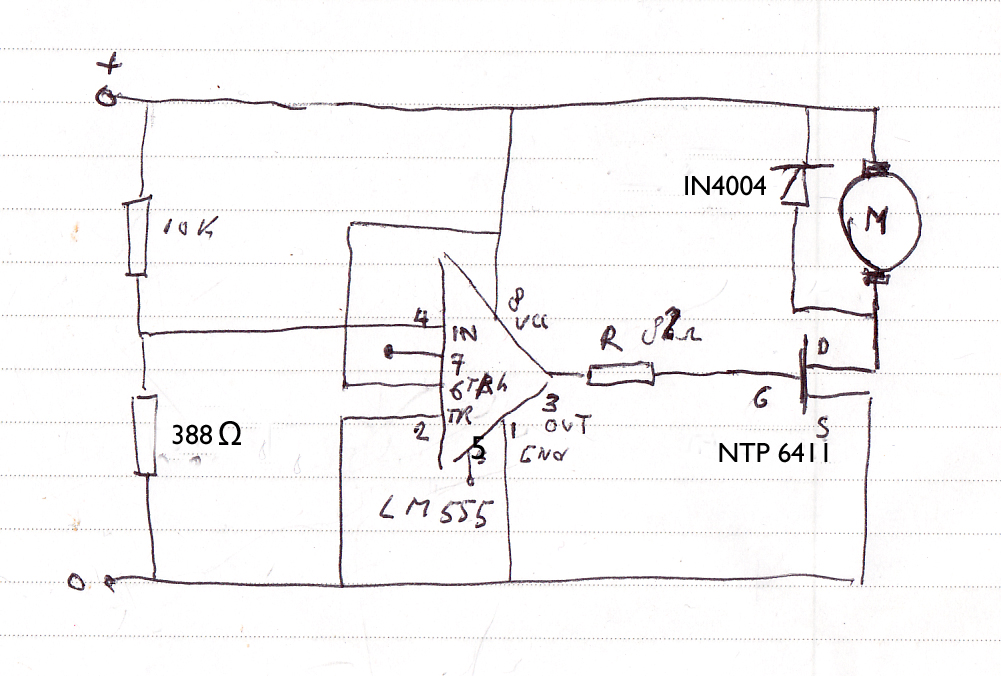 +
IN4004
M
10K
8
VCC
4
IN
R 82Ω
7
D
6
G
3
2
TR
OUT
388 Ω
1
S
5
GND
NTP 6411
LM555
0